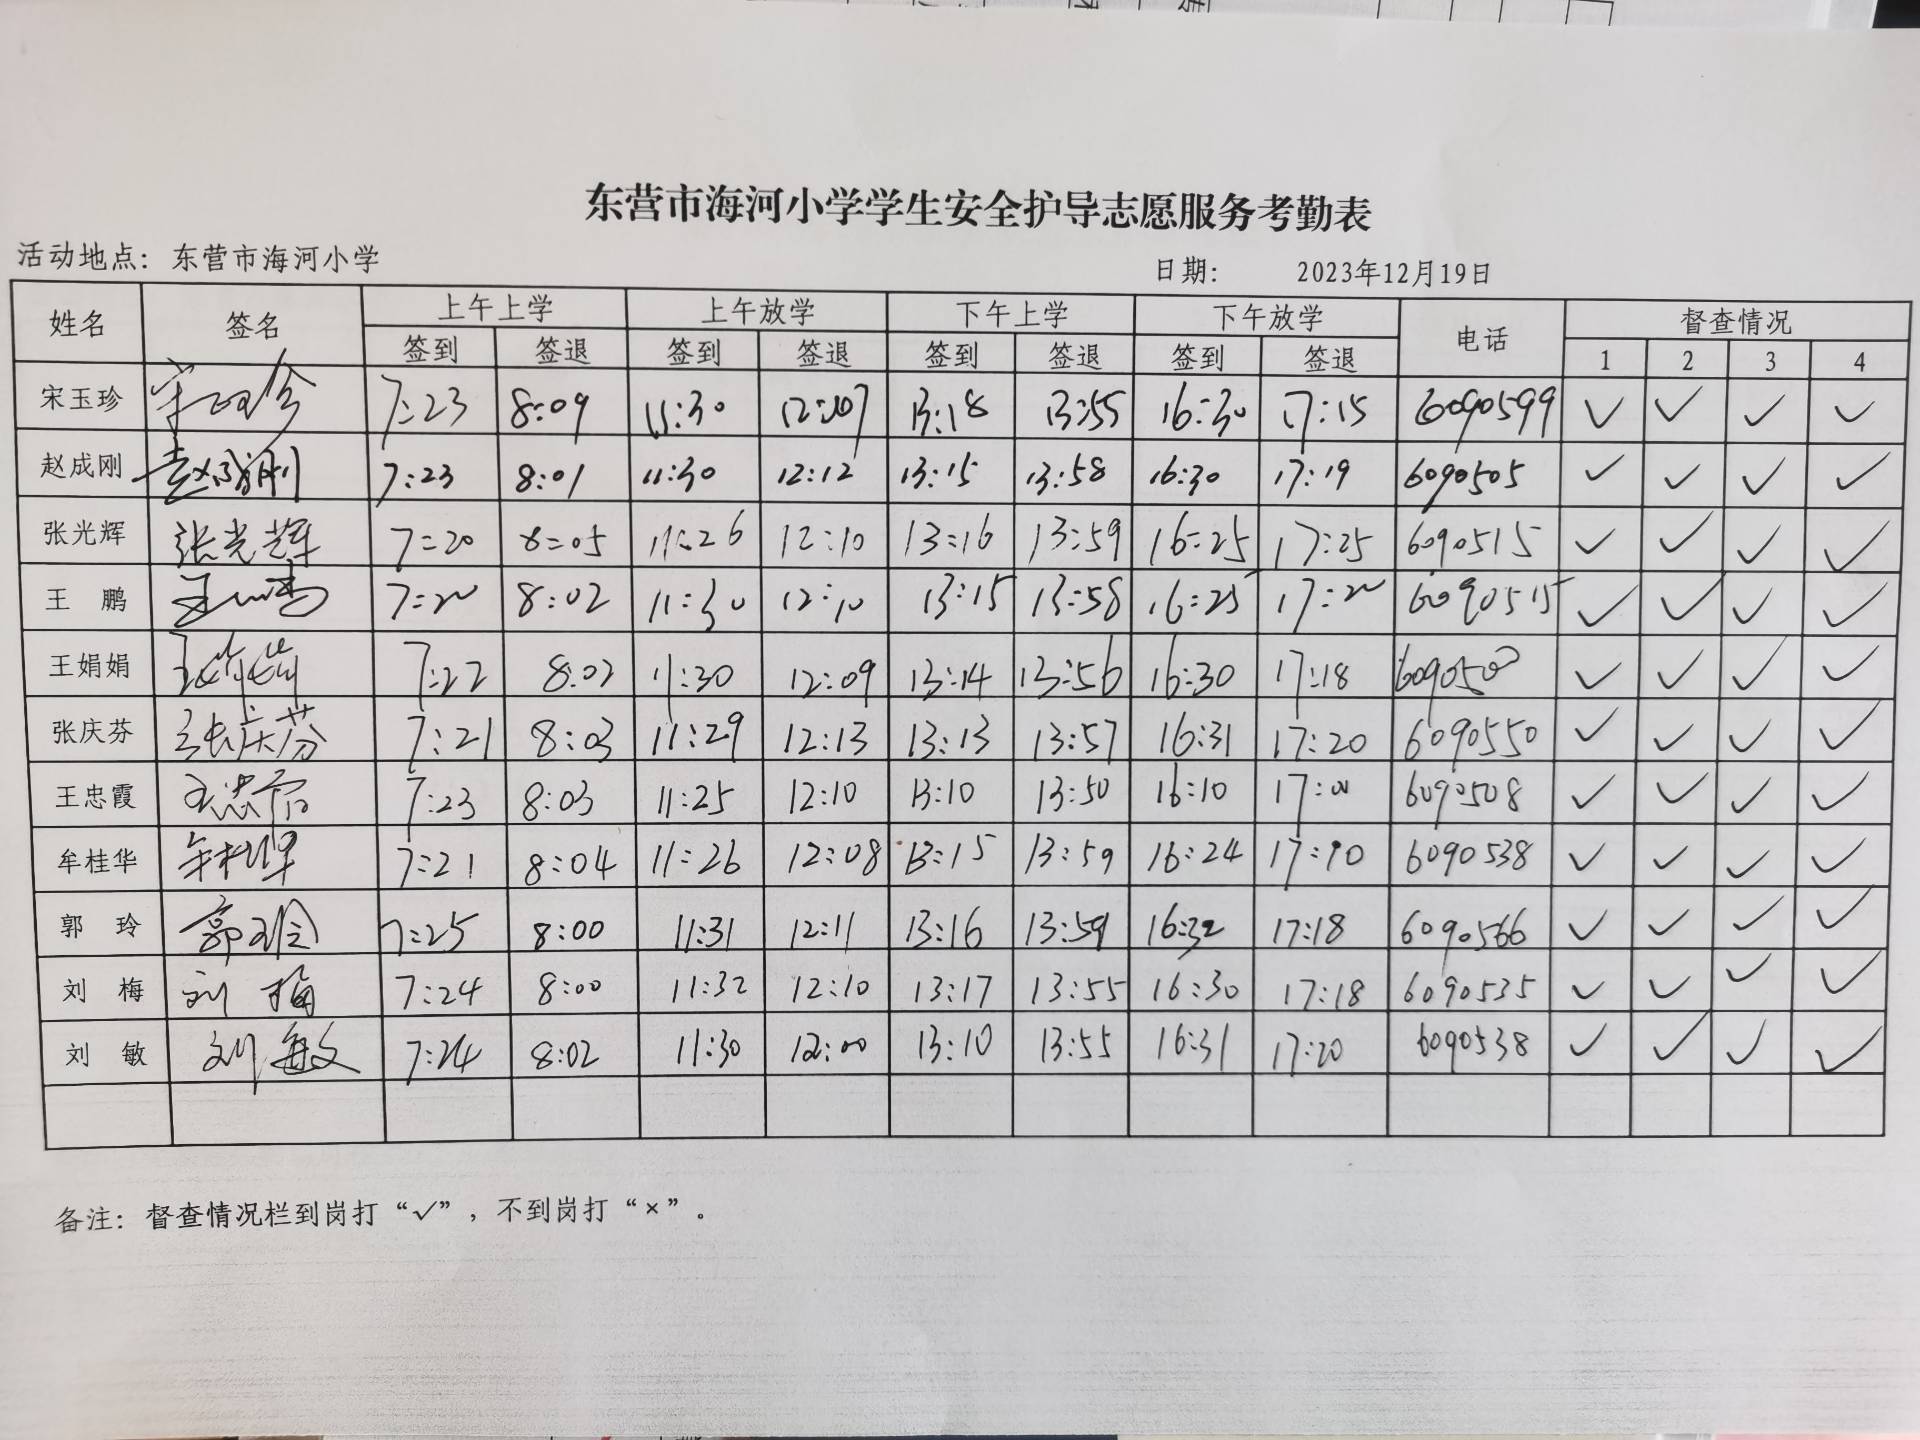 东营市海河小学学生安全护导志愿服务考勤表
活动地点: 东营市海河小学 日期: 2023年12月19日
姓名 签名 上午上学 上午放学 下午上学 下午放学 电话 督查情况
签到 签退 签到 签退 签到 签退 签到 签退 1 2 3 4
宋玉珍 宋玉珍 7:23 8:09 11:30 12:07 13:18 13:55 16:30 17:15 6090599 ✓ ✓ ✓ ✓
赵成刚 赵成刚 7:23 8:01 11:30 12:12 13:15 13:58 16:30 17:19 6090505 ✓ ✓ ✓ ✓
张光辉 张光辉 7:20 8:05 11:26 12:10 13:16 13:59 16:25 17:25 6090515 ✓ ✓ ✓ ✓
王 鹏 王鹏 7:20 8:02 11:30 12:10 13:15 13:58 16:25 17:20 6090515 ✓ ✓ ✓ ✓
王娟娟 7:22 8:02 11:30 12:09 13:14 13:56 16:30 17:18 ✓ ✓ ✓ ✓
张庆芬 张庆芬 7:21 8:03 11:29 12:13 13:13 13:57 16:31 17:20 6090550 ✓ ✓ ✓ ✓
王忠霞 王忠霞 7:23 8:03 11:25 12:10 13:10 13:50 16:10 17:00 6090508 ✓ ✓ ✓ ✓
牟桂华 牟桂华 7:21 8:04 11:26 12:08 13:15 13:59 16:24 17:10 6090538 ✓ ✓ ✓ ✓
郭 玲 郭玲 7:25 8:00 11:31 12:11 13:16 13:59 16:32 17:18 6090566 ✓ ✓ ✓ ✓
刘 梅 刘梅 7:24 8:00 11:32 12:10 13:17 13:55 16:30 17:18 6090535 ✓ ✓ ✓ ✓
刘 敏 刘敏 7:24 8:02 11:30 12:00 13:10 13:55 16:31 17:20 6090538 ✓ ✓ ✓ ✓
备注: 督查情况栏到岗打“✓”, 不到岗打“×”。